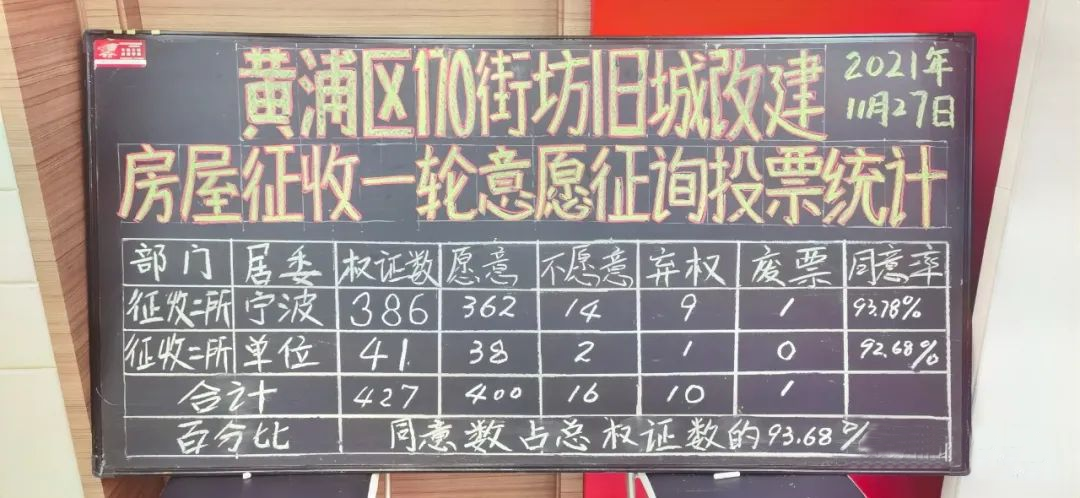 黄浦区170街坊旧城改建
2021年
11月27日
房屋征收一轮意愿征询投票统计
部门 居委 权证数 愿意 不愿意 弃权 废票 同意率
征收二所 宁波 386 362 14 9 1 93.78%
征收二所 单位 41 38 2 1 0 92.68%
合计 427 400 16 10 1
百分比 同意数占总权证数的93.68%